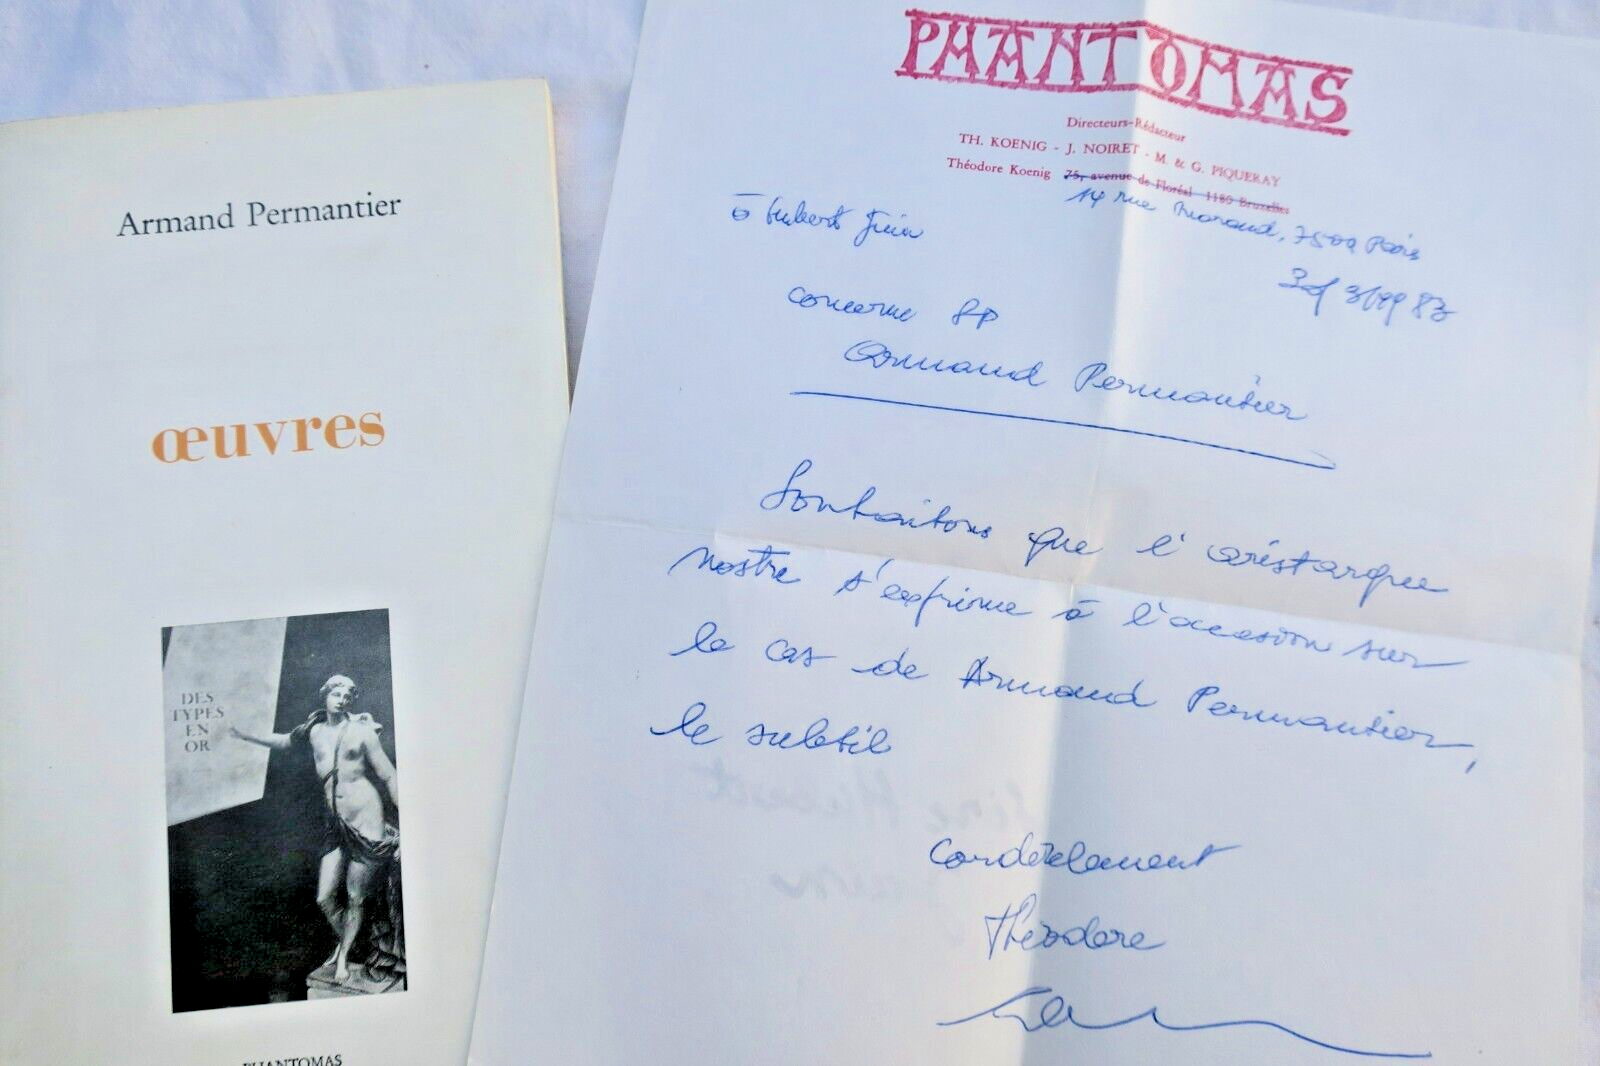 Armand Permantier
œuvres
DES
TYPES
EN
OR
PHANTOMAS
PHANTOMAS
Directeurs-Rédacteur
TH. KOENIG - J. NOIRET - M. & G. PIQUERAY
Théodore Koenig 75, avenue de Floréal 1180 Bruxelles
14 rue Morand, Paris
à Hubert Juin
concerne SP
Armand Permantier
Souhaitons que l'aristarque
nostre s'exprime à l'occasion sur
le cas de Armand Permantier,
le subtil
Cordialement
Théodore